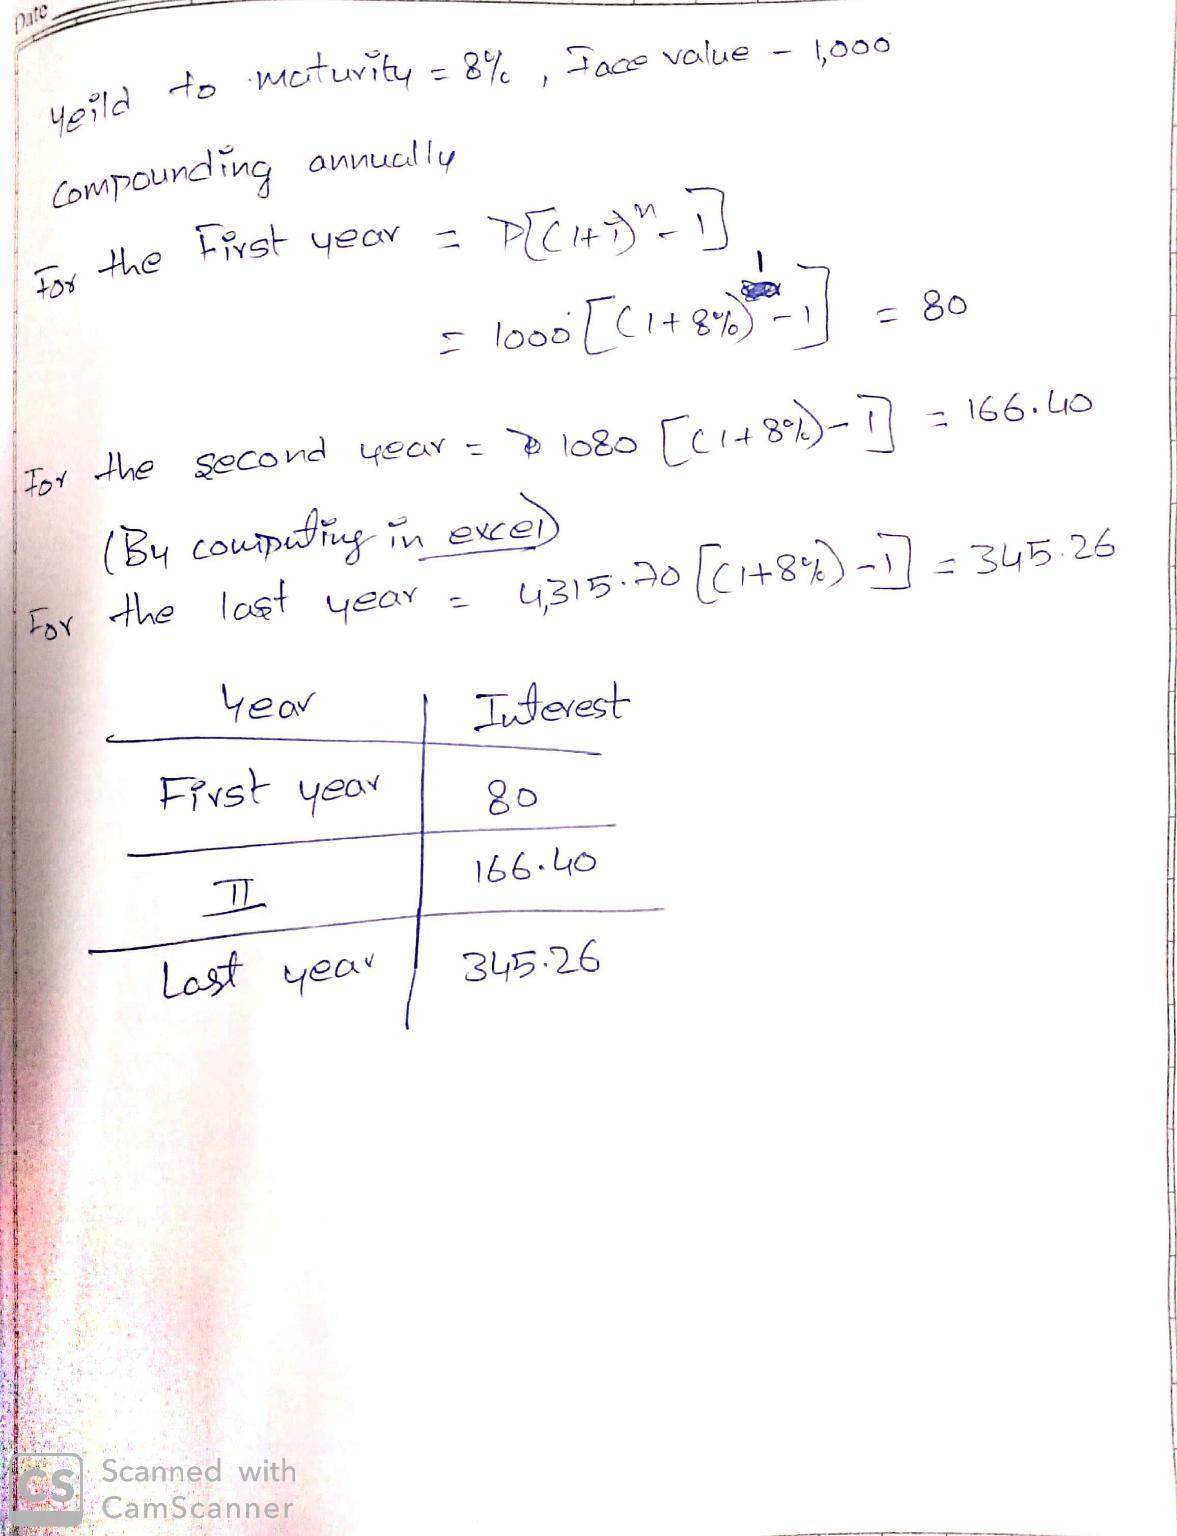 Date
Yeild to maturity = 8%, Face value - 1,000
Compounding annually
For the First year = P[(1+i)^n - 1]
= 1000 [(1+8%)^1 - 1] = 80
For the second year = 1080 [(1+8%) - 1] = 166.40
(By computing in excel)
For the last year = 4,315.70 [(1+8%) - 1] = 345.26
Year Interest
First year 80
II 166.40
Last year 345.26
CS Scanned with
CamScanner